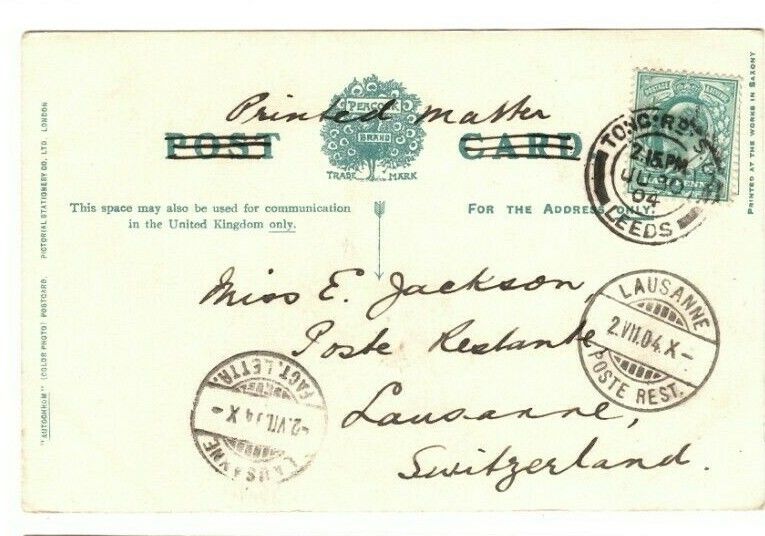 Printed matter
POST CARD
PEACOCK
BRAND
TRADE MARK
This space may also be used for communication
in the United Kingdom only.
FOR THE ADDRESS ONLY.
TONG·RD·
2.15PM
04
LEEDS
POSTAGE
Miss E. Jackson,
Poste Restante
Lausanne,
Switzerland.
LAUSANNE
2.VII.04.X-
POSTE REST.
LAUSANNE
-2.VII.04 X-
FACT. LETTR.
"AUTOCHROM" (COLOR PHOTO) POSTCARD. PICTORIAL STATIONERY CO. LTD. LONDON
PRINTED AT THE WORKS IN SAXONY